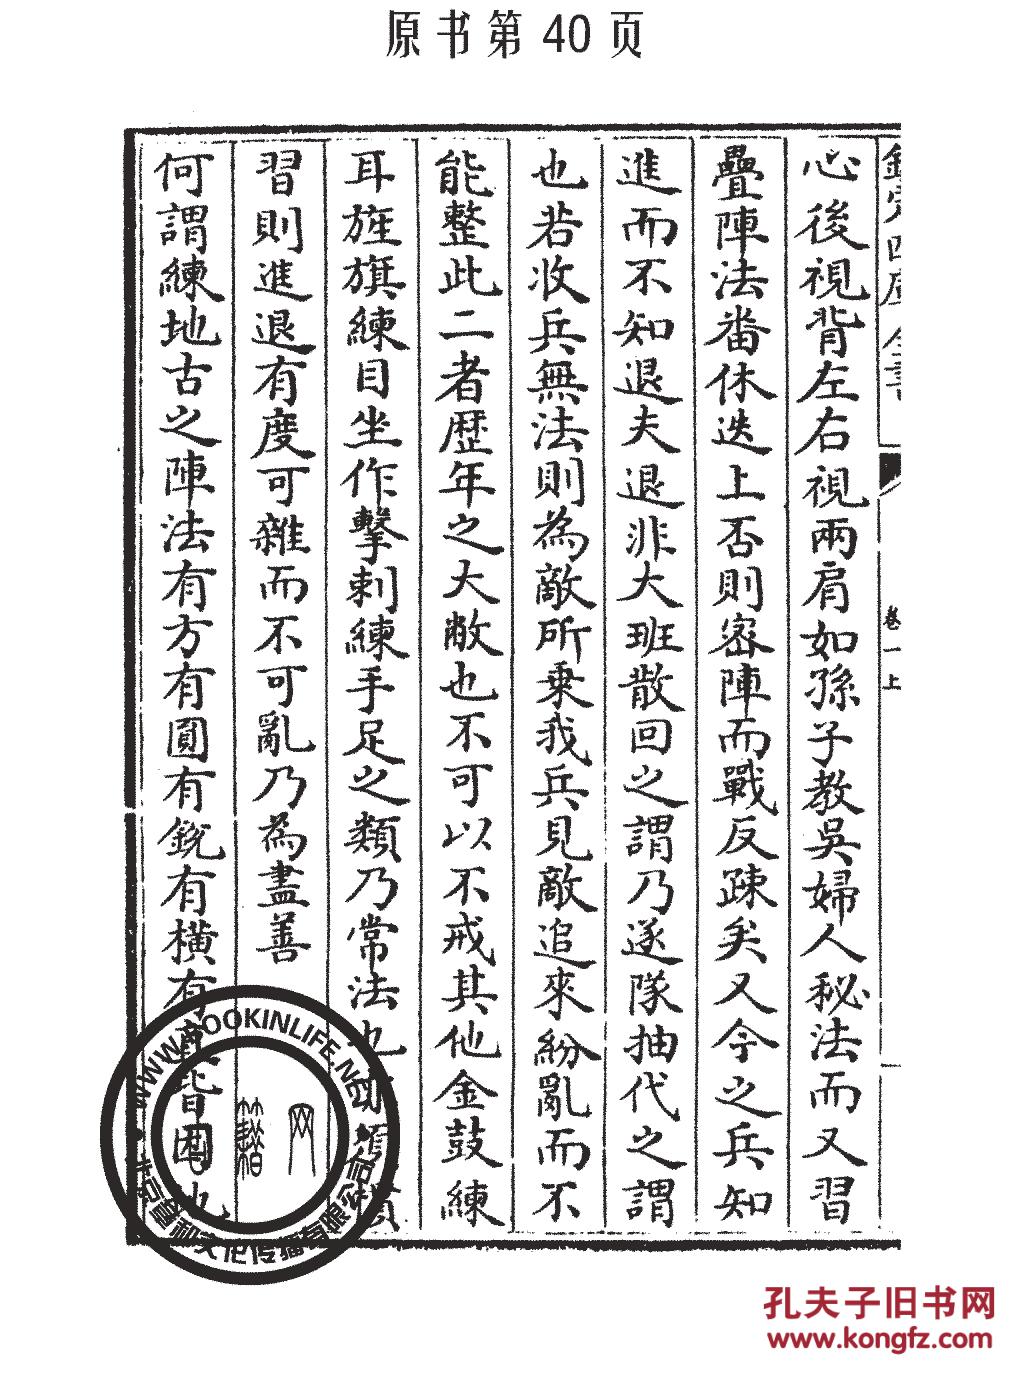 原书第 40 页
欽定四庫全書
卷一上
心後視背左右視兩肩如孫子教吳婦人秘法而又習
疊陣法畨休迭上否則密陣而戰反疎矣又今之兵知
進而不知退夫退非大班散回之謂乃遂隊抽代之謂
也若收兵無法則為敵所乗我兵見敵追來紛亂而不
能整此二者歴年之大敝也不可以不戒其他金鼓練
耳旌旗練目坐作擊刺練手足之類乃常法也
習則進退有度可雜而不可亂乃為盡善
何謂練地古之陣法有方有圓有銳有横有皆因
WWW.BOOKINLIFE.NET
网
孔夫子旧书网
www.kongfz.com